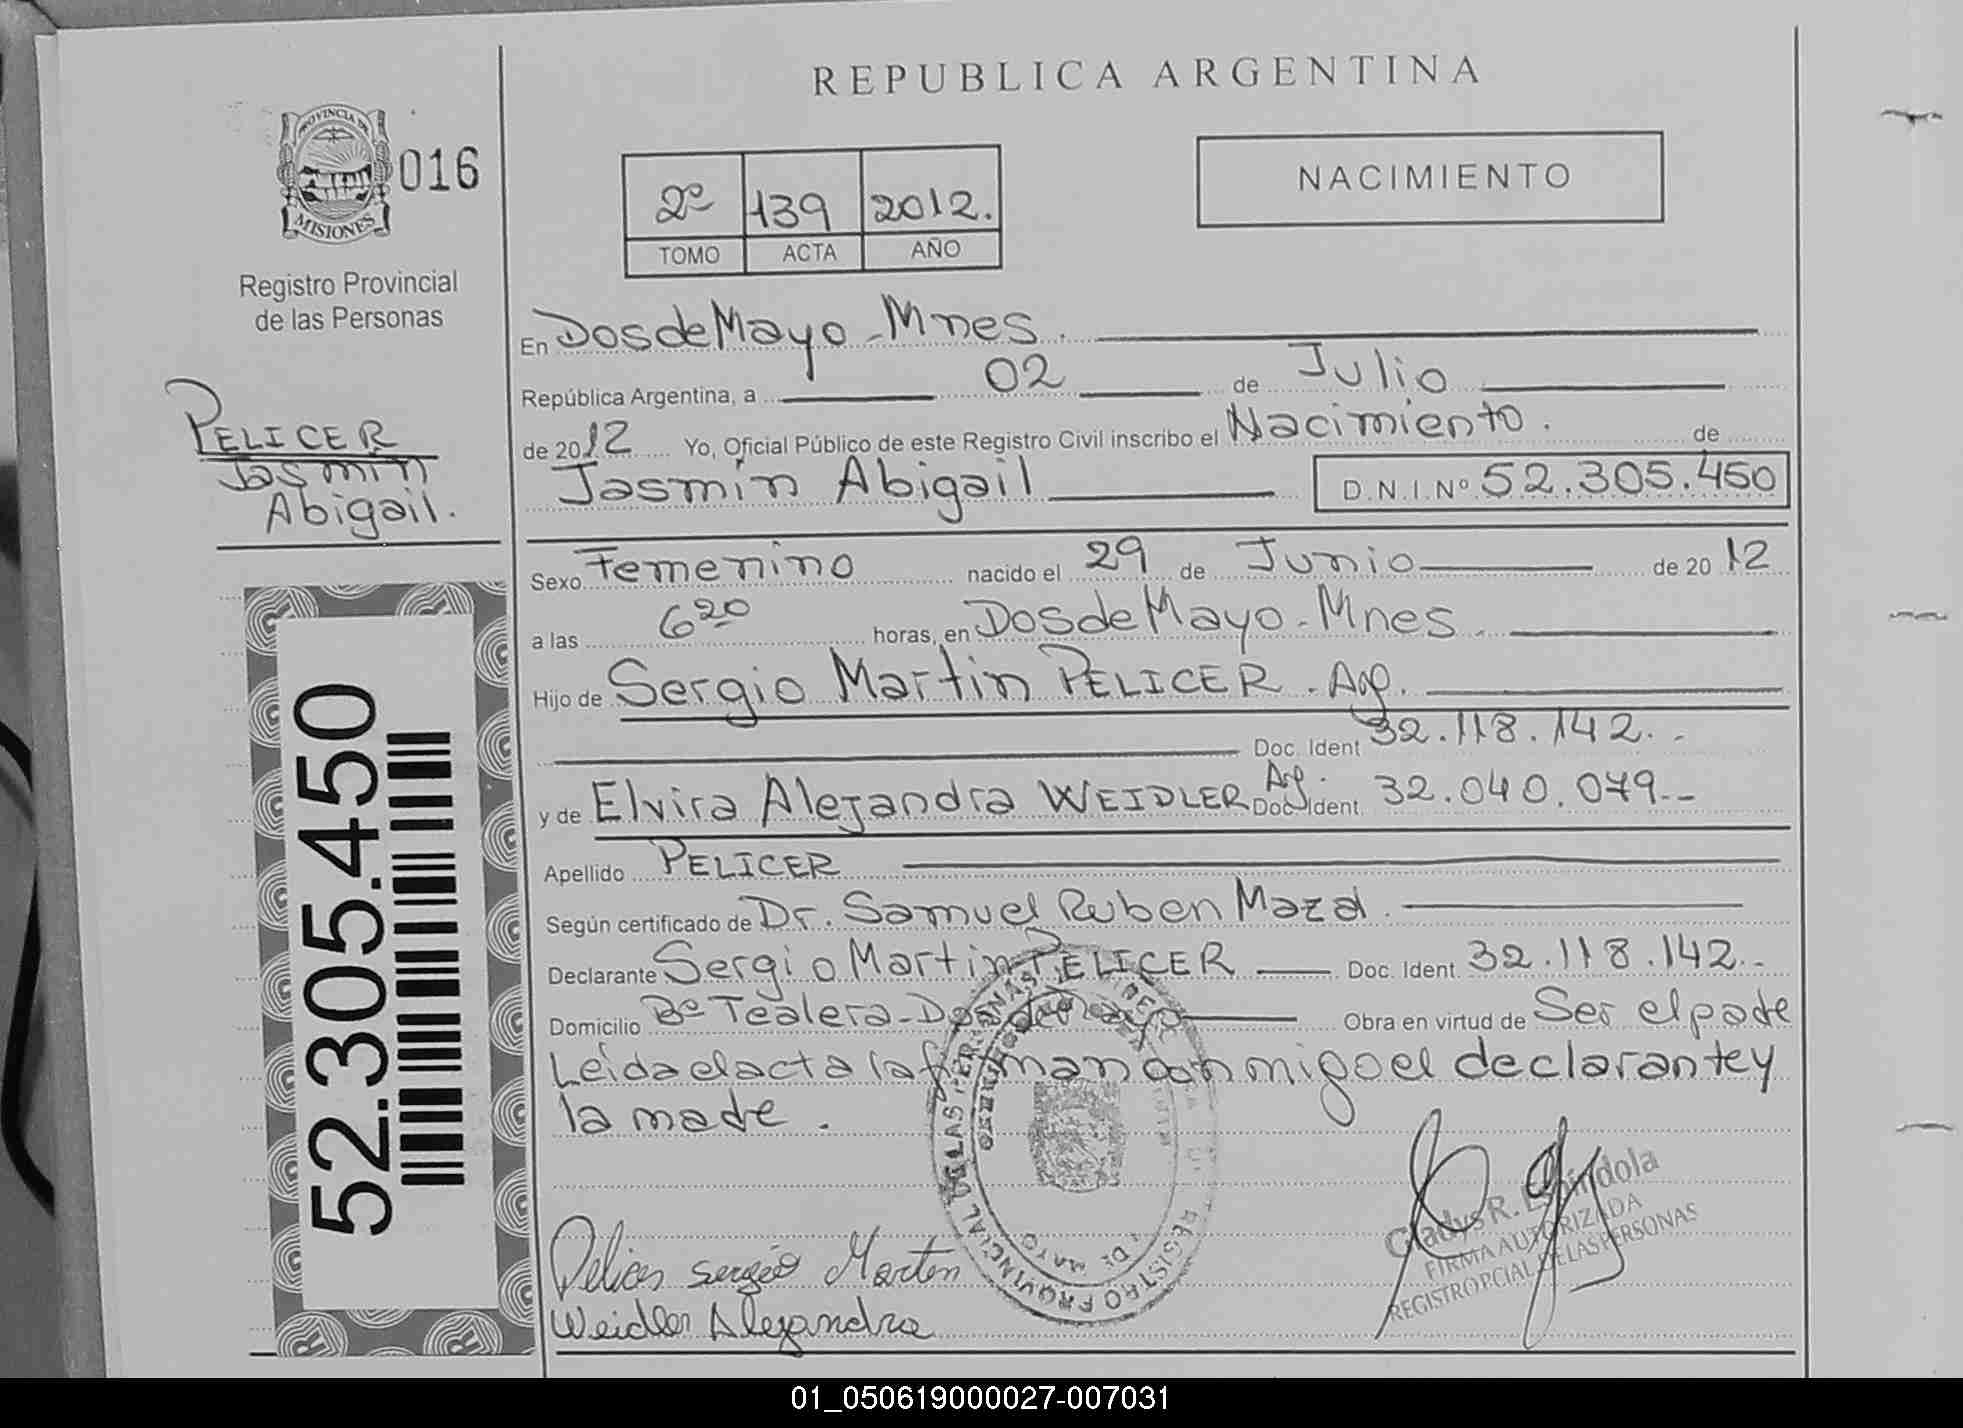 REPUBLICA ARGENTINA
PROVINCIA DE
MISIONES
016
Registro Provincial
de las Personas
2º 139 2012.
TOMO ACTA AÑO
NACIMIENTO
PELICER
Jasmín
Abigail.
52.305.450
En Dos de Mayo - Mnes.
República Argentina, a 02 de Julio
de 2012 Yo, Oficial Público de este Registro Civil inscribo el Nacimiento. de
Jasmín Abigail D.N.I. Nº 52.305.450
Sexo Femenino nacido el 29 de Junio de 20 12
a las 6 20 horas, en Dos de Mayo - Mnes.
Hijo de Sergio Martin PELICER. Arg.
Doc. Ident 32.118.142.-
y de Elvira Alejandra WEIDLER Arg. Doc. Ident. 32.040.079.-
Apellido PELICER
Según certificado de Dr. Samuel Ruben Mazal.
Declarante Sergio Martin PELICER Doc. Ident. 32.118.142.-
Domicilio Bº Tealera - Dos de Mayo Obra en virtud de Ser el padre
Leida el acta la firman conmigo el declarante y
la madre.
REGISTRO PROVINCIAL DE LAS PERSONAS
DE MAYO
Pelicer Sergio Martin
Weidler Alejandra
Gladys R. Espíndola
FIRMA AUTORIZADA
REGISTRO PCIAL DE LAS PERSONAS
01_050619000027-007031